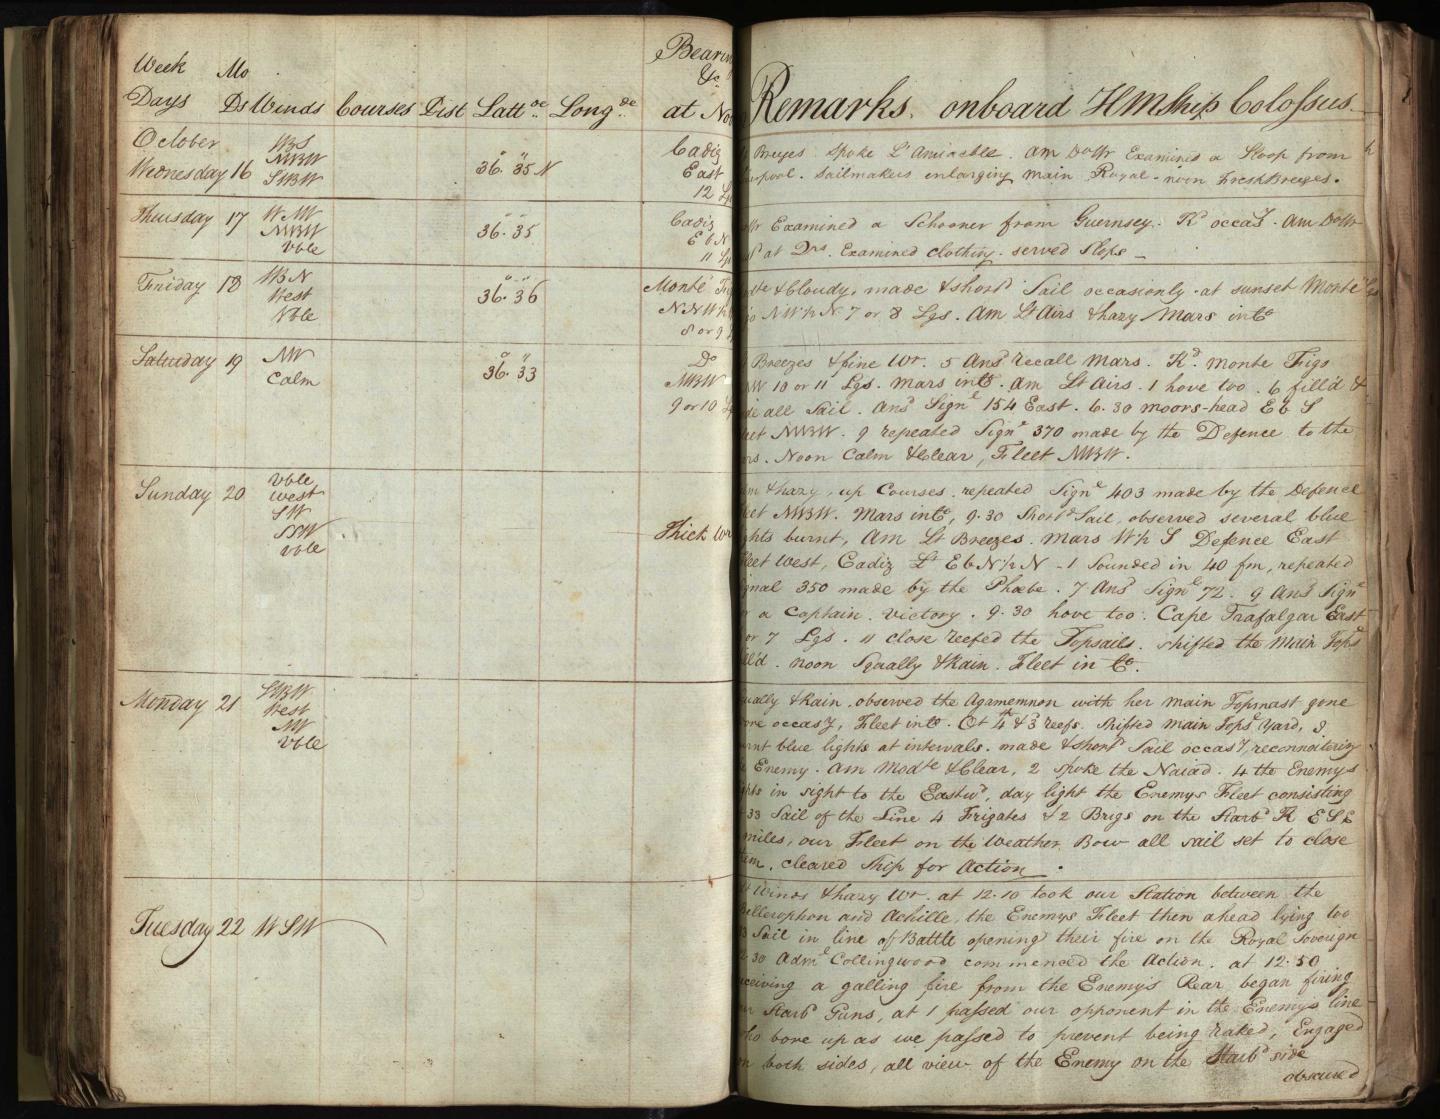 Week Mo Bearin
&c
Days Ds Winds Courses Dist Lattde Longde at No
October WBS Cadiz
Wednesday 16 NWBW SWBW 36.35 N East
12 Lgs
Thursday 17 WNW NWBW Vble 36.35 Cadiz
E b N
11 Lgs
Friday 18 WBN West Vble 36.36 Monte Fig
NNW½
8 or 9
Saturday 19 NW Calm 36.33 Do
NWBW
9 or 10 L
Sunday 20 Vble West SW SSW Vble
Thick Wr
Monday 21 SWBW West NW Vble
Tuesday 22 WSW
Remarks. onboard HMShip Colossus
Breezes spoke L'Amiable. AM DoWr Examined a Sloop from
pool. Sailmakers enlarging Main Royal. noon FreshBreezes.
Wr Examined a Schooner from Guernsey. Kd occasy. AM DoWr
at Qrs. Examined clothing. served Slops
& Cloudy, made & shortd Sail occasionly. at sunset Monte
NW½N 7 or 8 Lgs. AM Lt Airs & hazy Mars in Co
Breezes & fine Wr. 5 Ansd recall Mars. Kd. Monte Figo
NW 10 or 11 Lgs. Mars in Co. AM Lt Airs. 1 hove too. 6 fill'd &
all Sail. Ansd Signl 154 East. 6.30 moors-head E b S
NWBW. 9 repeated Signl 370 made by the Defence to the
Noon Calm & Clear, Fleet NWBW.
& hazy, up Courses. repeated Signl 403 made by the Defence
NWBW. Mars in Co, 9.30 Shortd Sail, observed several blue
ghts burnt, AM Lt Breezes. Mars W½S Defence East
leet West, Cadiz Lt EbN½N - 1 Sounded in 40 fm, repeated
gnal 350 made by the Phœbe. 7 Ansd Signl 72. 9 Ansd Signl
a Captain. Victory. 9.30 hove too. Cape Trafalgar East
or 7 Lgs. 11 close reefed the Topsails. shifted the Main Tops
ll'd. noon Squally & Rain. Fleet in Co.
ually & Rain. observed the Agamemnon with her Main Topmast gone
ore occasy, Fleet in Co. Ot 4th & 3d reefs. Shifted Main Topsl Yard, 8
urnt blue lights at intervals. made & shortd Sail occasy, reconnoitering
Enemy. AM Modte & Clear, 2 spoke the Naiad. 4 the Enemys
ghts in sight to the Eastwd, day light the Enemys Fleet consisting
33 Sail of the Line 4 Frigates & 2 Brigs on the Starbd K ESE
miles, our Fleet on the Weather Bow all sail set to close
em. cleared Ship for Action
Winds & hazy Wr. at 12.10 took our Station between the
Bellerophon and Achille, the Enemys Fleet then ahead lying too
33 Sail in line of Battle opening their fire on the Royal Sovereign
30 Adml Collingwood commenced the Action. at 12.50
eceiving a galling fire from the Enemy's Rear began firing
Starbd Guns, at 1 passed our opponent in the Enemys line
ho bore up as we passed to prevent being raked, Engaged
n both sides, all view of the Enemy on the Starbd side
obscured